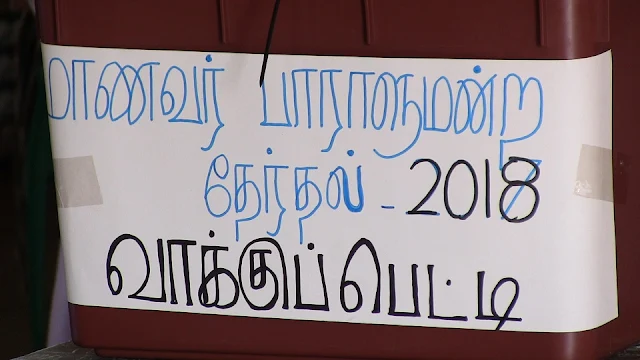 மாணவர் பாராளுமன்ற
தேர்தல் - 2018
வாக்குப்பெட்டி